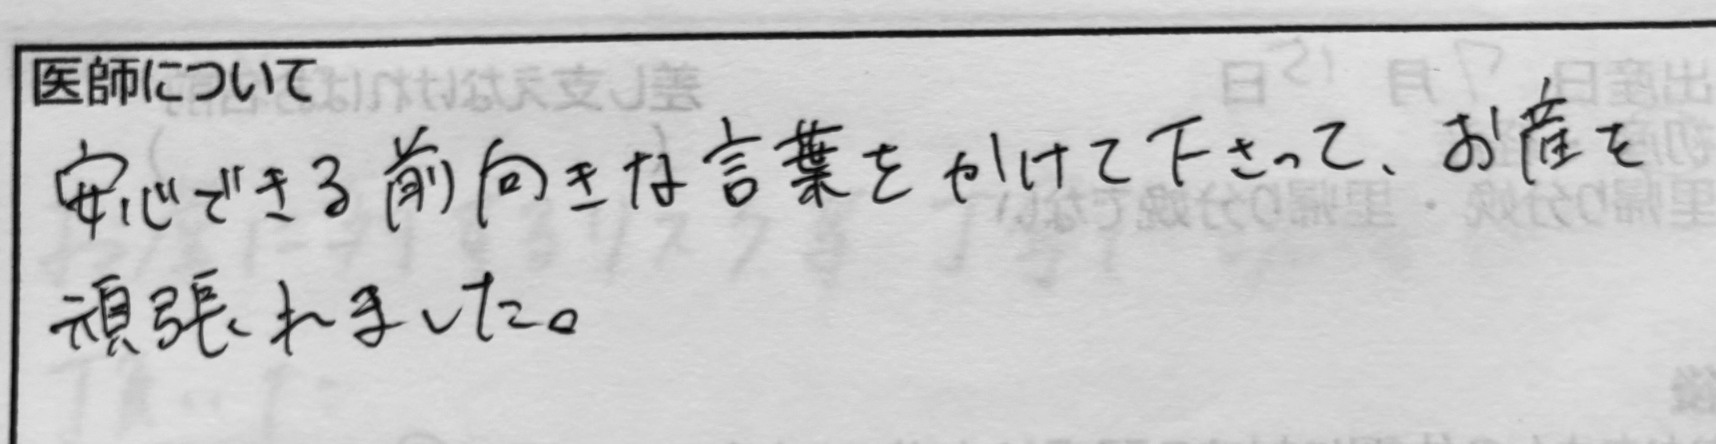 医師について
安心できる前向きな言葉をかけて下さって、お産を
頑張れました。